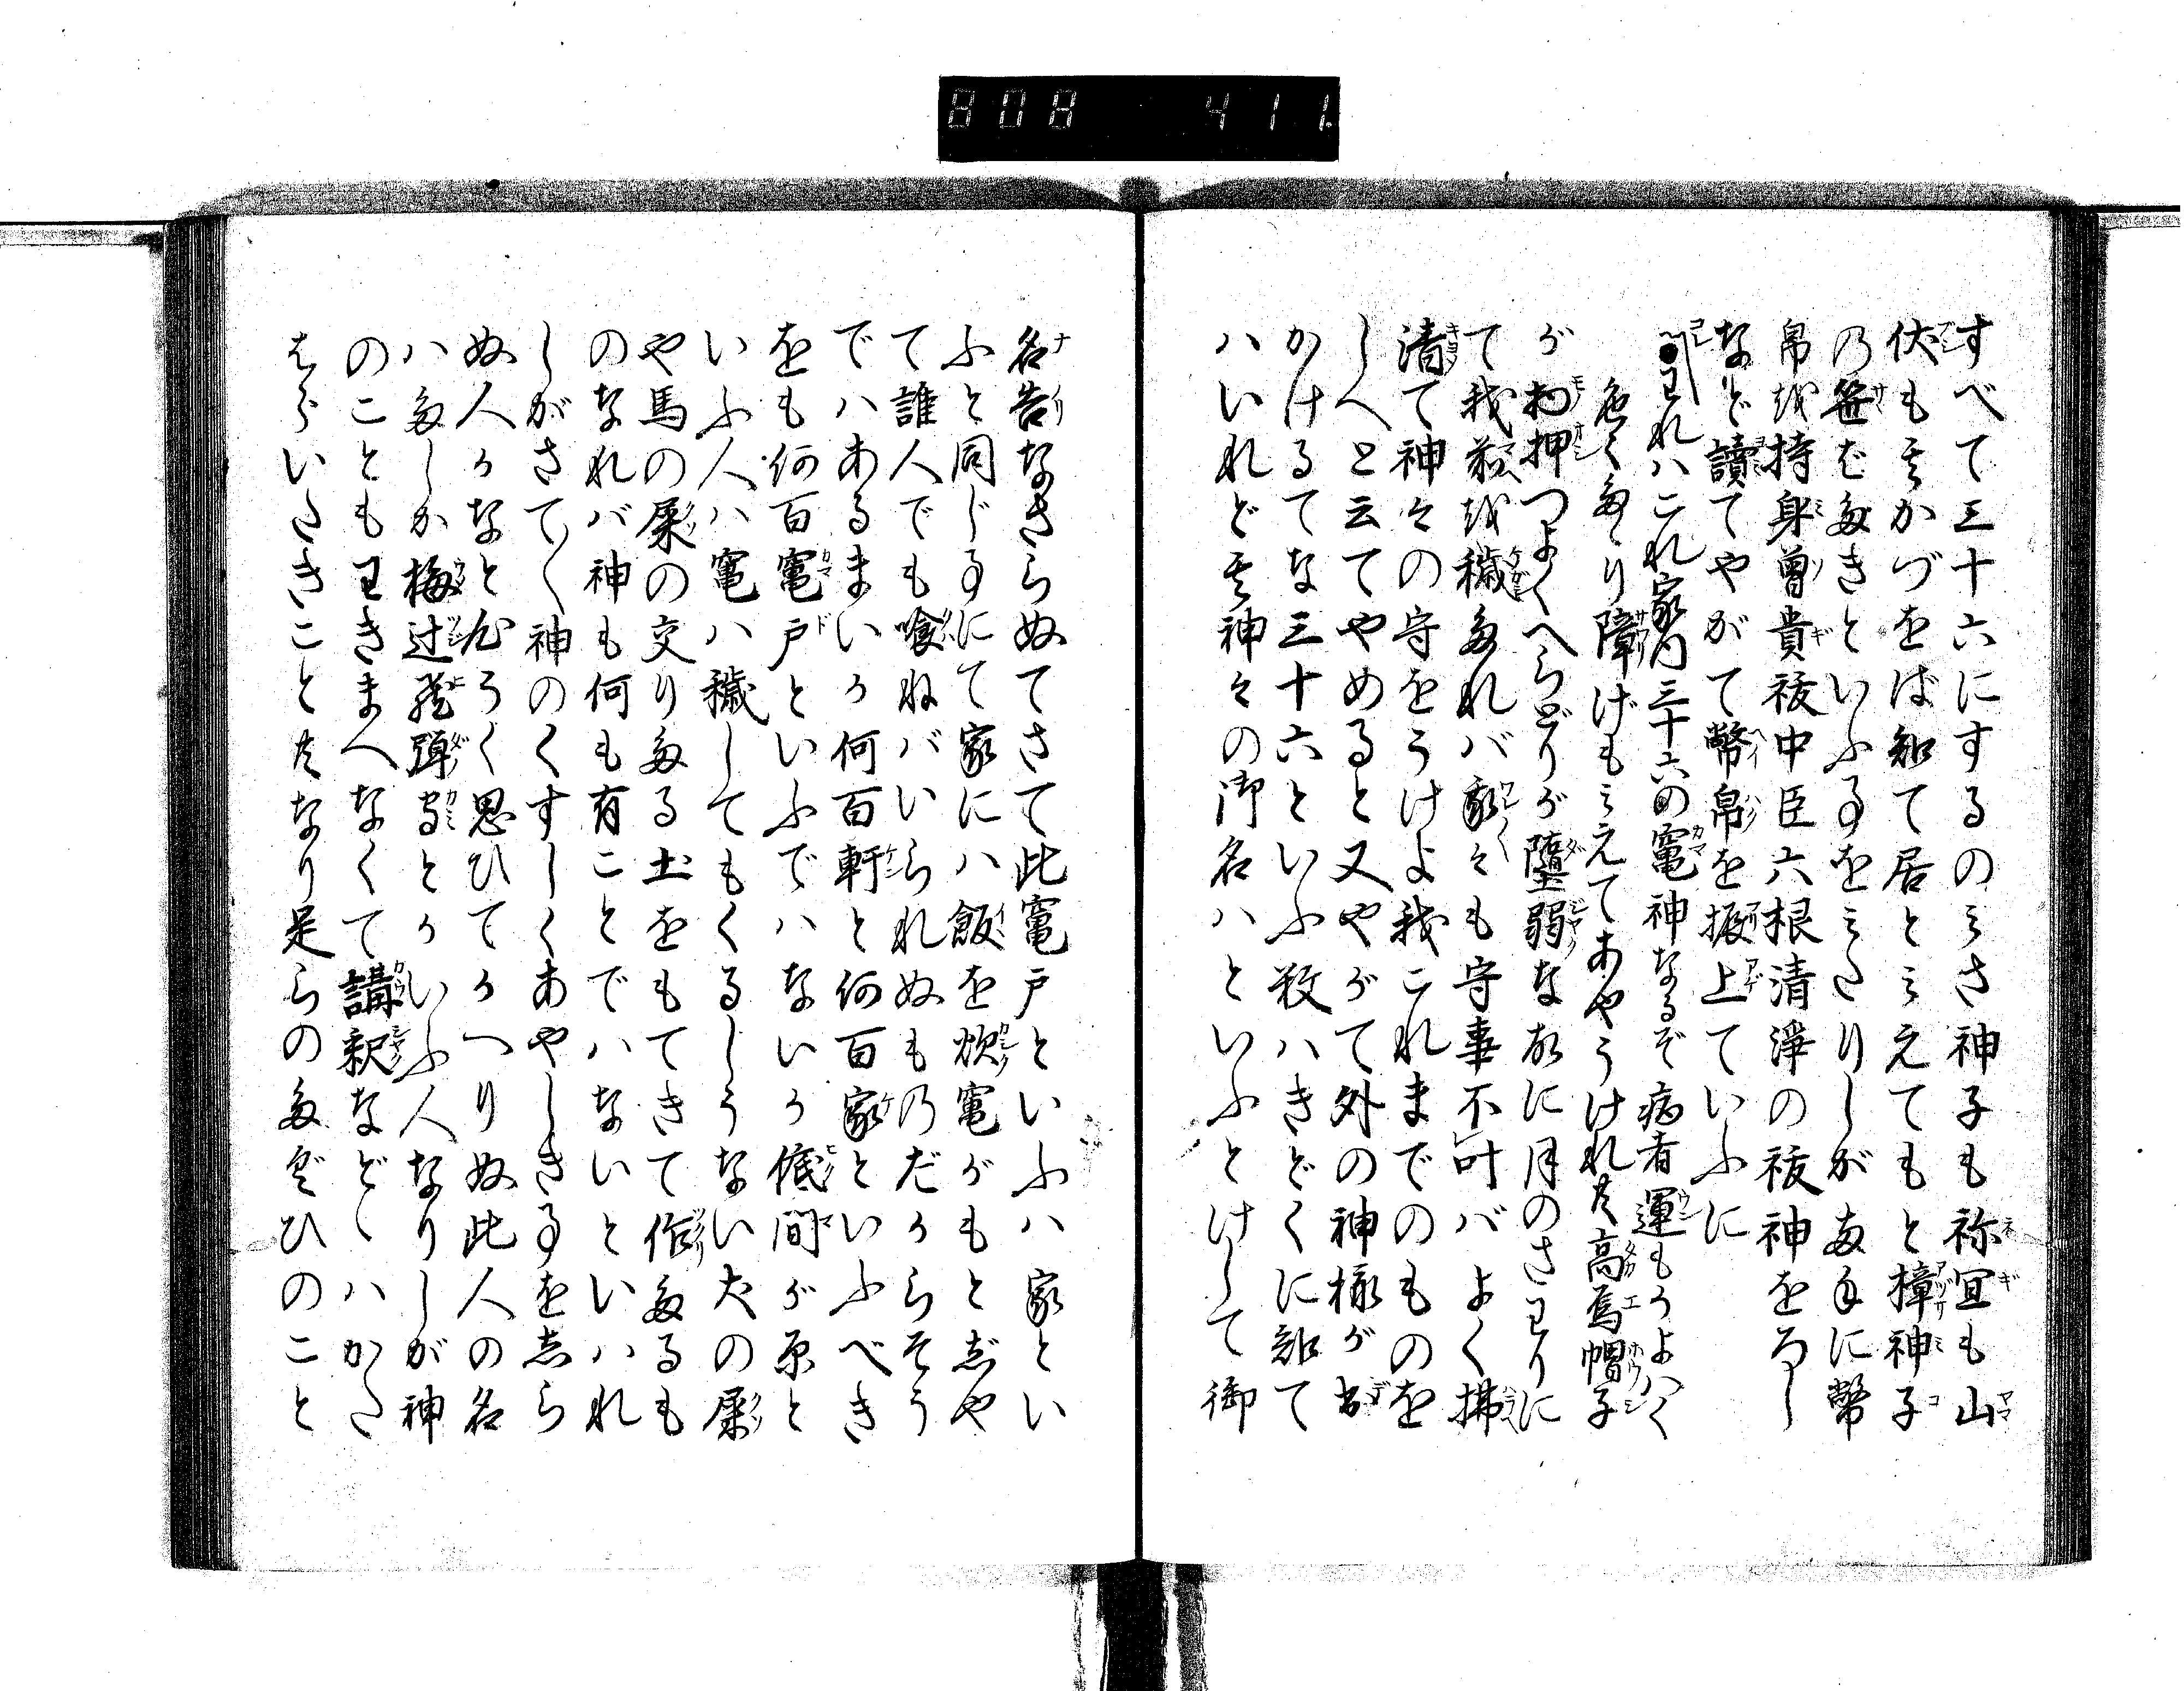 808 411
すべて三十六にするのミさ神子も祢宜も山
伏も其かづをば知て居とミえてもと樟神子
乃笹ばたきといふ事をミたりしが両手に幣
帛或持身曽貴祓中臣六根清浄の祓神をろし
など讀てやがて幣帛を振上ていふに
われハこれ家内三十六の竈神なるぞ病者運もうよハく
悪くたゝり障げもミえてあやうけれ共高烏帽子
が物押つよくへらどりが墮弱な故に月のさわりに
て我前或穢たれバ家々も守事不叶バよく拂
清て神々の守をうけよ我これまでのものを
しへと云てやめると又やがて外の神様が出
かけるてな三十六といふ数ハきどくに知て
ハいれど其神々の御名ハといふとけして御
名告なさらぬてさて此竈戸といふハ家とい
ふと同じ事にて家にハ飯を炊竈がもとぢや
て誰人でも喰ねバいられぬも乃だからそう
でハあるまいか何百軒と何百家といふべき
をも何百竈戸といふでハないか俄間が原と
いふ人ハ竈ハ穢してもくるしうない犬の屎
や馬の屎の交り多る土をもてきて作多るも
のなれバ神も何も有ことでハないといハれ
しがさて〳〵神のくすしくあやしき事を志ら
ぬ人かなと心うく思ひてかへりぬ此人の名
ハ多しか梅辻飛騨守とかいふ人なりしが神
のこともわきまへなくて講釈などゝハかた
はらいたきこと共なり足らの多ぐひのこと